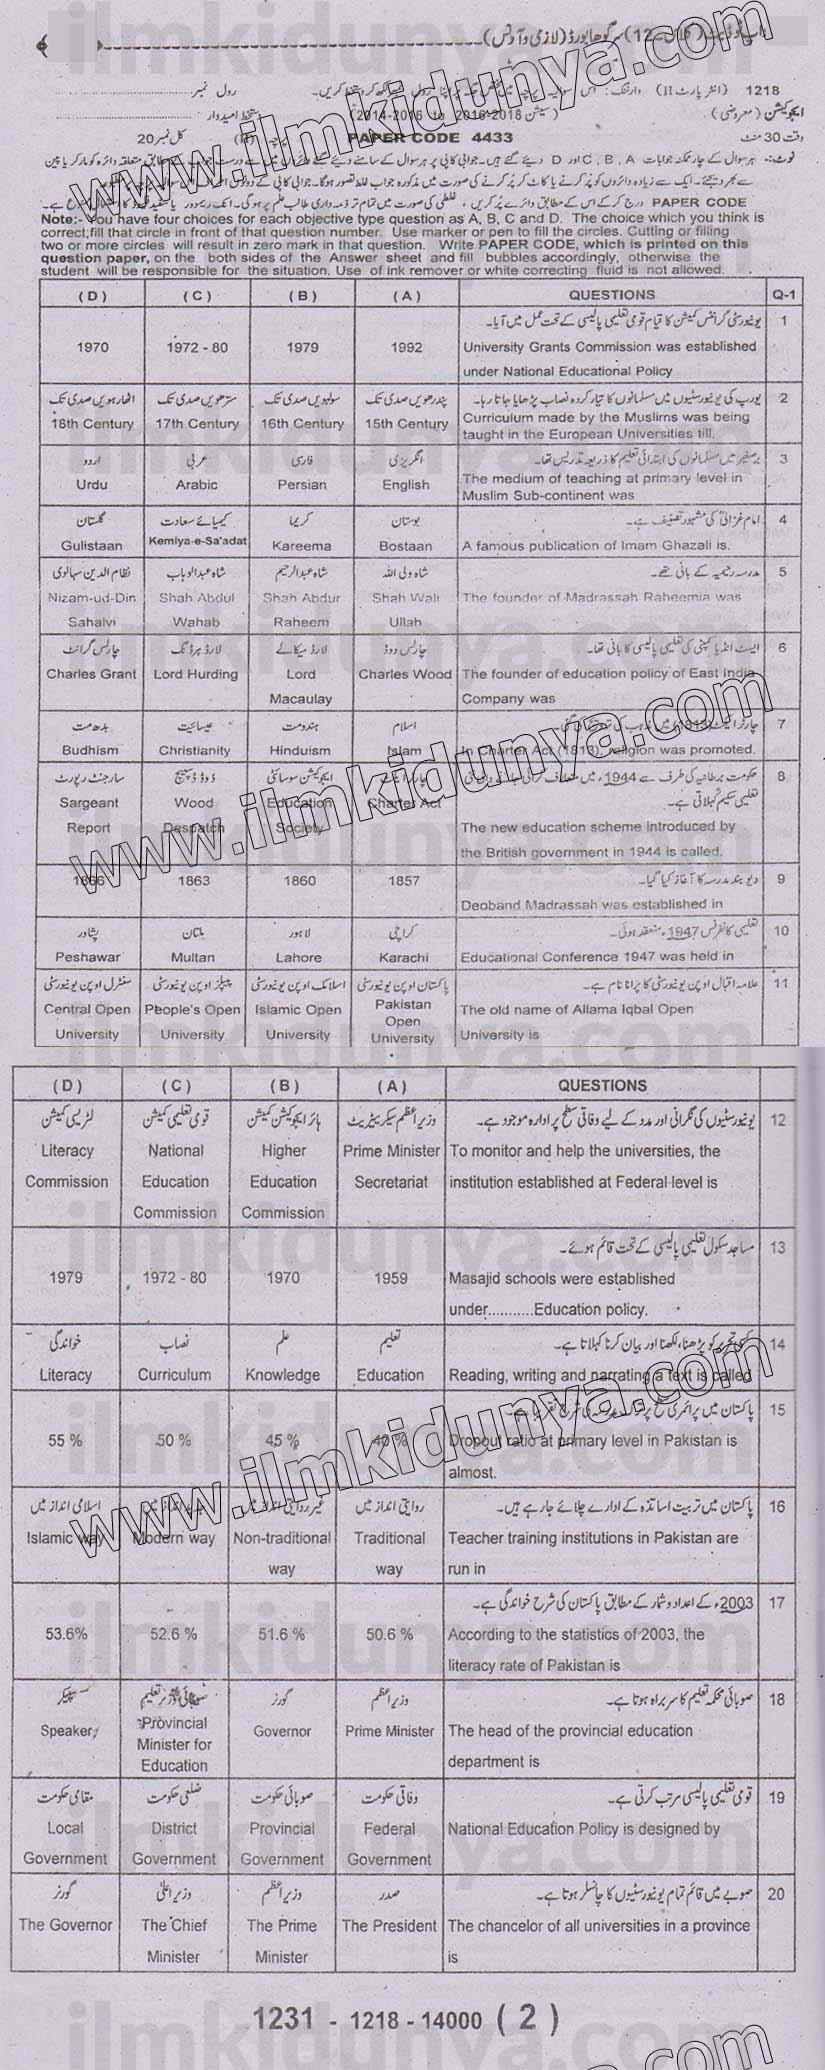 اپ ٹو ڈیٹ (کلاس -12) سرگودھا بورڈ (لازمی و آرٹس)
1218 (انٹر پارٹ II) وارننگ: اس سوالیہ رول نمبر
ایجوکیشن (معروضی) (سیشن 2016-2018 to 2014-2016) دستخط امیدوار
وقت 30 منٹ PAPER CODE 4433 کل نمبر 20
نوٹ:- ہر سوال کے چار ممکنہ جوابات A، B، C اور D دیئے گئے ہیں۔ جوابی کاپی پر ہر سوال کے سامنے دیئے گئے
PAPER CODE
Note:- You have four choices for each objective type question as A, B, C and D. The choice which you think is
correct;fill that circle in front of that question number. Use marker or pen to fill the circles. Cutting or filling
two or more circles will result in zero mark in that question. Write PAPER CODE, which is printed on this
question paper, on the both sides of the Answer sheet and fill bubbles accordingly, otherwise the
student will be responsible for the situation. Use of ink remover or white correcting fluid is not allowed.
(D) (C) (B) (A) QUESTIONS Q-1
یونیورسٹی گرانٹس کمیشن کا قیام قومی تعلیمی پالیسی کے تحت عمل میں آیا۔ 1
1970 1972 - 80 1979 1992 University Grants Commission was established
under National Educational Policy
اٹھارہویں صدی تک سترھویں صدی تک سولہویں صدی تک پندرھویں صدی تک یورپ کی یونیورسٹیوں میں مسلمانوں کا تیار کردہ نصاب پڑھایا جاتا رہا۔ 2
18th Century 17th Century 16th Century 15th Century Curriculum made by the Muslims was being
taught in the European Universities till.
اردو عربی فارسی انگریزی برصغیر میں مسلمانوں کی ابتدائی تعلیم کا ذریعہ تدریس تھا۔ 3
Urdu Arabic Persian English The medium of teaching at primary level in
Muslim Sub-continent was
گلستان کیمیائے سعادت کریما بوستان امام غزالیؒ کی مشہور تصنیف ہے۔ 4
Gulistaan Kemiya-e-Sa'adat Kareema Bostaan A famous publication of Imam Ghazali is.
نظام الدین سہالوی شاہ عبدالوہاب شاہ عبدالرحیم شاہ ولی اللہ مدرسہ رحیمیہ کے بانی تھے۔ 5
Nizam-ud-Din Shah Abdul Shah Abdur Shah Wali The founder of Madrassah Raheemia was
Sahalvi Wahab Raheem Ullah
چارلس گرانٹ لارڈ ہرڈنگ لارڈ میکالے چارلس ووڈ ایسٹ انڈیا کمپنی کی تعلیمی پالیسی کا بانی تھا۔ 6
Charles Grant Lord Hurding Lord Charles Wood The founder of education policy of East India
Macaulay Company was
بدھ مت عیسائیت ہندومت اسلام چارٹر ایکٹ (1813) میں مذہب کی 7
Budhism Christianity Hinduism Islam In Charter Act (1813), religion was promoted.
سارجنٹ رپورٹ ووڈ ڈسپیچ ایجوکیشن سوسائٹی چارٹر ایکٹ حکومت برطانیہ کی طرف سے 1944ء میں 8
Sargeant Wood Education Charter Act تعلیمی سکیم کہلاتی ہے۔
Report Despatch Society The new education scheme introduced by
the British government in 1944 is called.
1866 1863 1860 1857 دیوبند مدرسہ کا آغاز کیا گیا۔ 9
Deoband Madrassah was established in
پشاور ملتان لاہور کراچی تعلیمی کانفرنس 1947ء منعقد ہوئی۔ 10
Peshawar Multan Lahore Karachi Educational Conference 1947 was held in
سنٹرل اوپن یونیورسٹی پیپلز اوپن یونیورسٹی اسلامک اوپن یونیورسٹی پاکستان اوپن یونیورسٹی علامہ اقبال اوپن یونیورسٹی کا پرانا نام ہے۔ 11
Central Open People's Open Islamic Open Pakistan The old name of Allama Iqbal Open
University University University Open University University is
(D) (C) (B) (A) QUESTIONS
لٹریسی کمیشن قومی تعلیمی کمیشن ہائر ایجوکیشن کمیشن وزیراعظم سیکریٹریٹ یونیورسٹیوں کی نگرانی اور مدد کے لیے وفاقی سطح پر ادارہ موجود ہے۔ 12
Literacy National Higher Prime Minister To monitor and help the universities, the
Commission Education Education Secretariat institution established at Federal level is
Commission Commission
مساجد سکول تعلیمی پالیسی کے تحت قائم ہوئے۔ 13
1979 1972 - 80 1970 1959 Masajid schools were established
under...........Education policy.
خواندگی نصاب علم تعلیم کسی تحریر کو پڑھنا، لکھنا اور بیان کرنا کہلاتا ہے۔ 14
Literacy Curriculum Knowledge Education Reading, writing and narrating a text is called
پاکستان میں پرائمری سطح پر 15
55 % 50 % 45 % 40 % Dropout ratio at primary level in Pakistan is
almost.
اسلامی انداز میں جدید انداز میں غیر روایتی انداز میں روایتی انداز میں پاکستان میں تربیت اساتذہ کے ادارے چلائے جا رہے ہیں۔ 16
Islamic way Modern way Non-traditional Traditional Teacher training institutions in Pakistan are
way way run in
2003ء کے اعداد و شمار کے مطابق پاکستان کی شرح خواندگی ہے۔ 17
53.6% 52.6 % 51.6 % 50.6 % According to the statistics of 2003, the
literacy rate of Pakistan is
سپیکر صوبائی وزیر تعلیم گورنر وزیراعظم صوبائی محکمہ تعلیم کا سربراہ ہوتا ہے۔ 18
Speaker Provincial Governor Prime Minister The head of the provincial education
Minister for department is
Education
مقامی حکومت ضلعی حکومت صوبائی حکومت وفاقی حکومت قومی تعلیمی پالیسی مرتب کرتی ہے۔ 19
Local District Provincial Federal National Education Policy is designed by
Government Government Government Government
گورنر وزیر اعلیٰ وزیراعظم صدر صوبے میں قائم تمام یونیورسٹیوں کا چانسلر ہوتا ہے۔ 20
The Governor The Chief The Prime The President The chancelor of all universities in a province
Minister Minister is
1231 - 1218 - 14000 ( 2 )
www.ilmkidunya.com
www.ilmkidunya.com
www.ilmkidunya.com